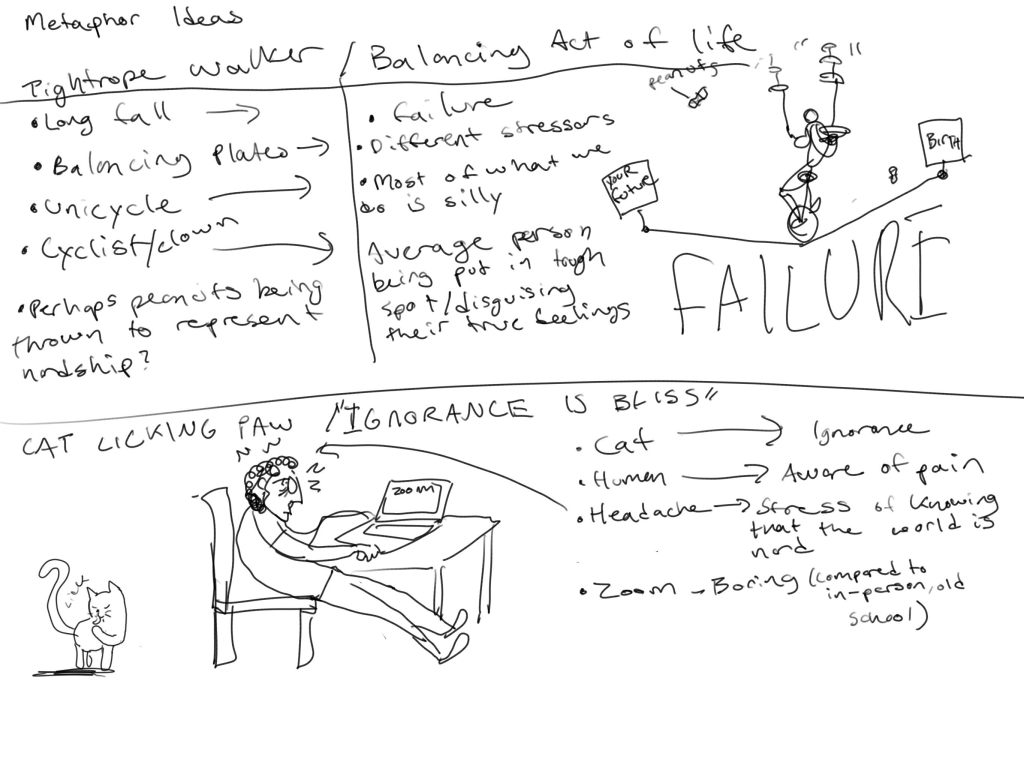 Metaphor Ideas
Tightrope walker / Balancing Act of life
• Long fall →
• Balancing Plates →
• Unicycle →
• Cyclist/clown →
• Perhaps peanuts being
thrown to represent
hardship?
• Failure
• Different stressors
• Most of what we
do is silly
Average person
being put in tough
spot/disguising
their true feelings
peanuts
" "
YOUR
Future
BIRTH
FAILURE
CAT LICKING PAW / "IGNORANCE IS BLISS"
• Cat → Ignorance
• Human → Aware of pain
• Headache → Stress of knowing
that the world is
hard
• Zoom → Boring (compared to
in-person, old
school)
ZOOM